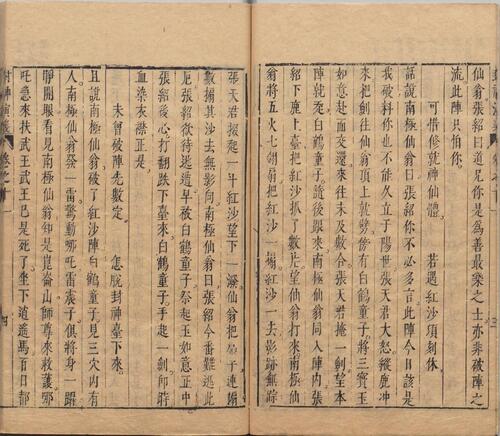 仙翁張紹曰道兄你是為善最樂之士亦非破陣之
流此陣只怕你
可惜修就神仙體 若遇紅沙頃刻休
話說南極仙翁曰張紹你不必多言此陣今日該是
我破料你也不能久立于陽世張天君大怒縱鹿冲
來把劍往仙翁頂上就劈傍有白鶴童子將三寶玉
如意赴面交還來往未及數合張天君掩一劍望本
陣就走白鶴童子隨後跟來南極仙翁同入陣內張
紹下鹿上臺把紅沙抓了數片望仙翁打來南極仙
翁將五火七翎扇把紅沙一搧紅沙一去影跡無踪
張天君掇起一斗紅沙望下一潑仙翁把扇子連搧
數搧其沙去無影向南極仙翁曰張紹今番難逃此
厄張紹欲待逃遁早被白鶴童子祭起玉如意正中
張紹後心打翻跌下臺來白鶴童子手起一劍即時
血染衣襟正是
未曾破陣先數定 怎脫封神臺下來
且說南極仙翁破了紅沙陣白鶴童子見三穴內有
人南極仙翁發一雷驚動哪吒雷震子俱將身一躍
睜開眼看見南極仙翁知是崑崙山師尊來救護哪
吒急來扶武王武王已是死了坐下逍遙馬百日都
封神演義 卷之十一 四